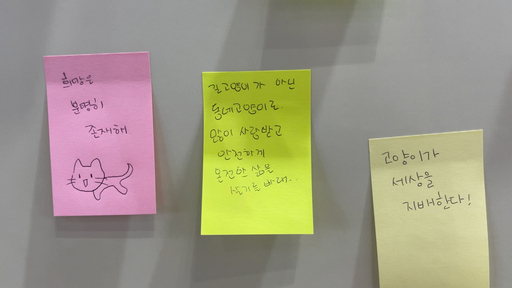 희망은
분명히
존재해
길고양이가 아닌
동네고양이로
많이 사랑받고
안전하게
온전한 삶을
살기를 바래..
고양이가
세상을
지배한다!